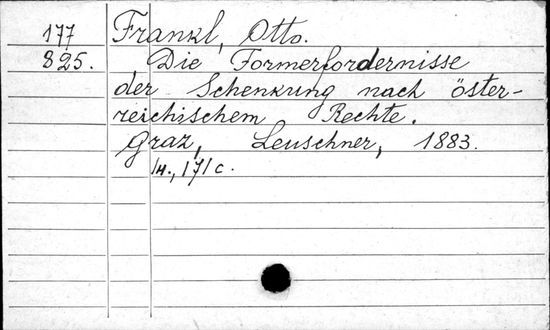 177 Frankl, Otto.
825. Die Formerfordernisse
der Schenkung nach öster-
reichischem Rechte.
Graz, Leuschner, 1883.